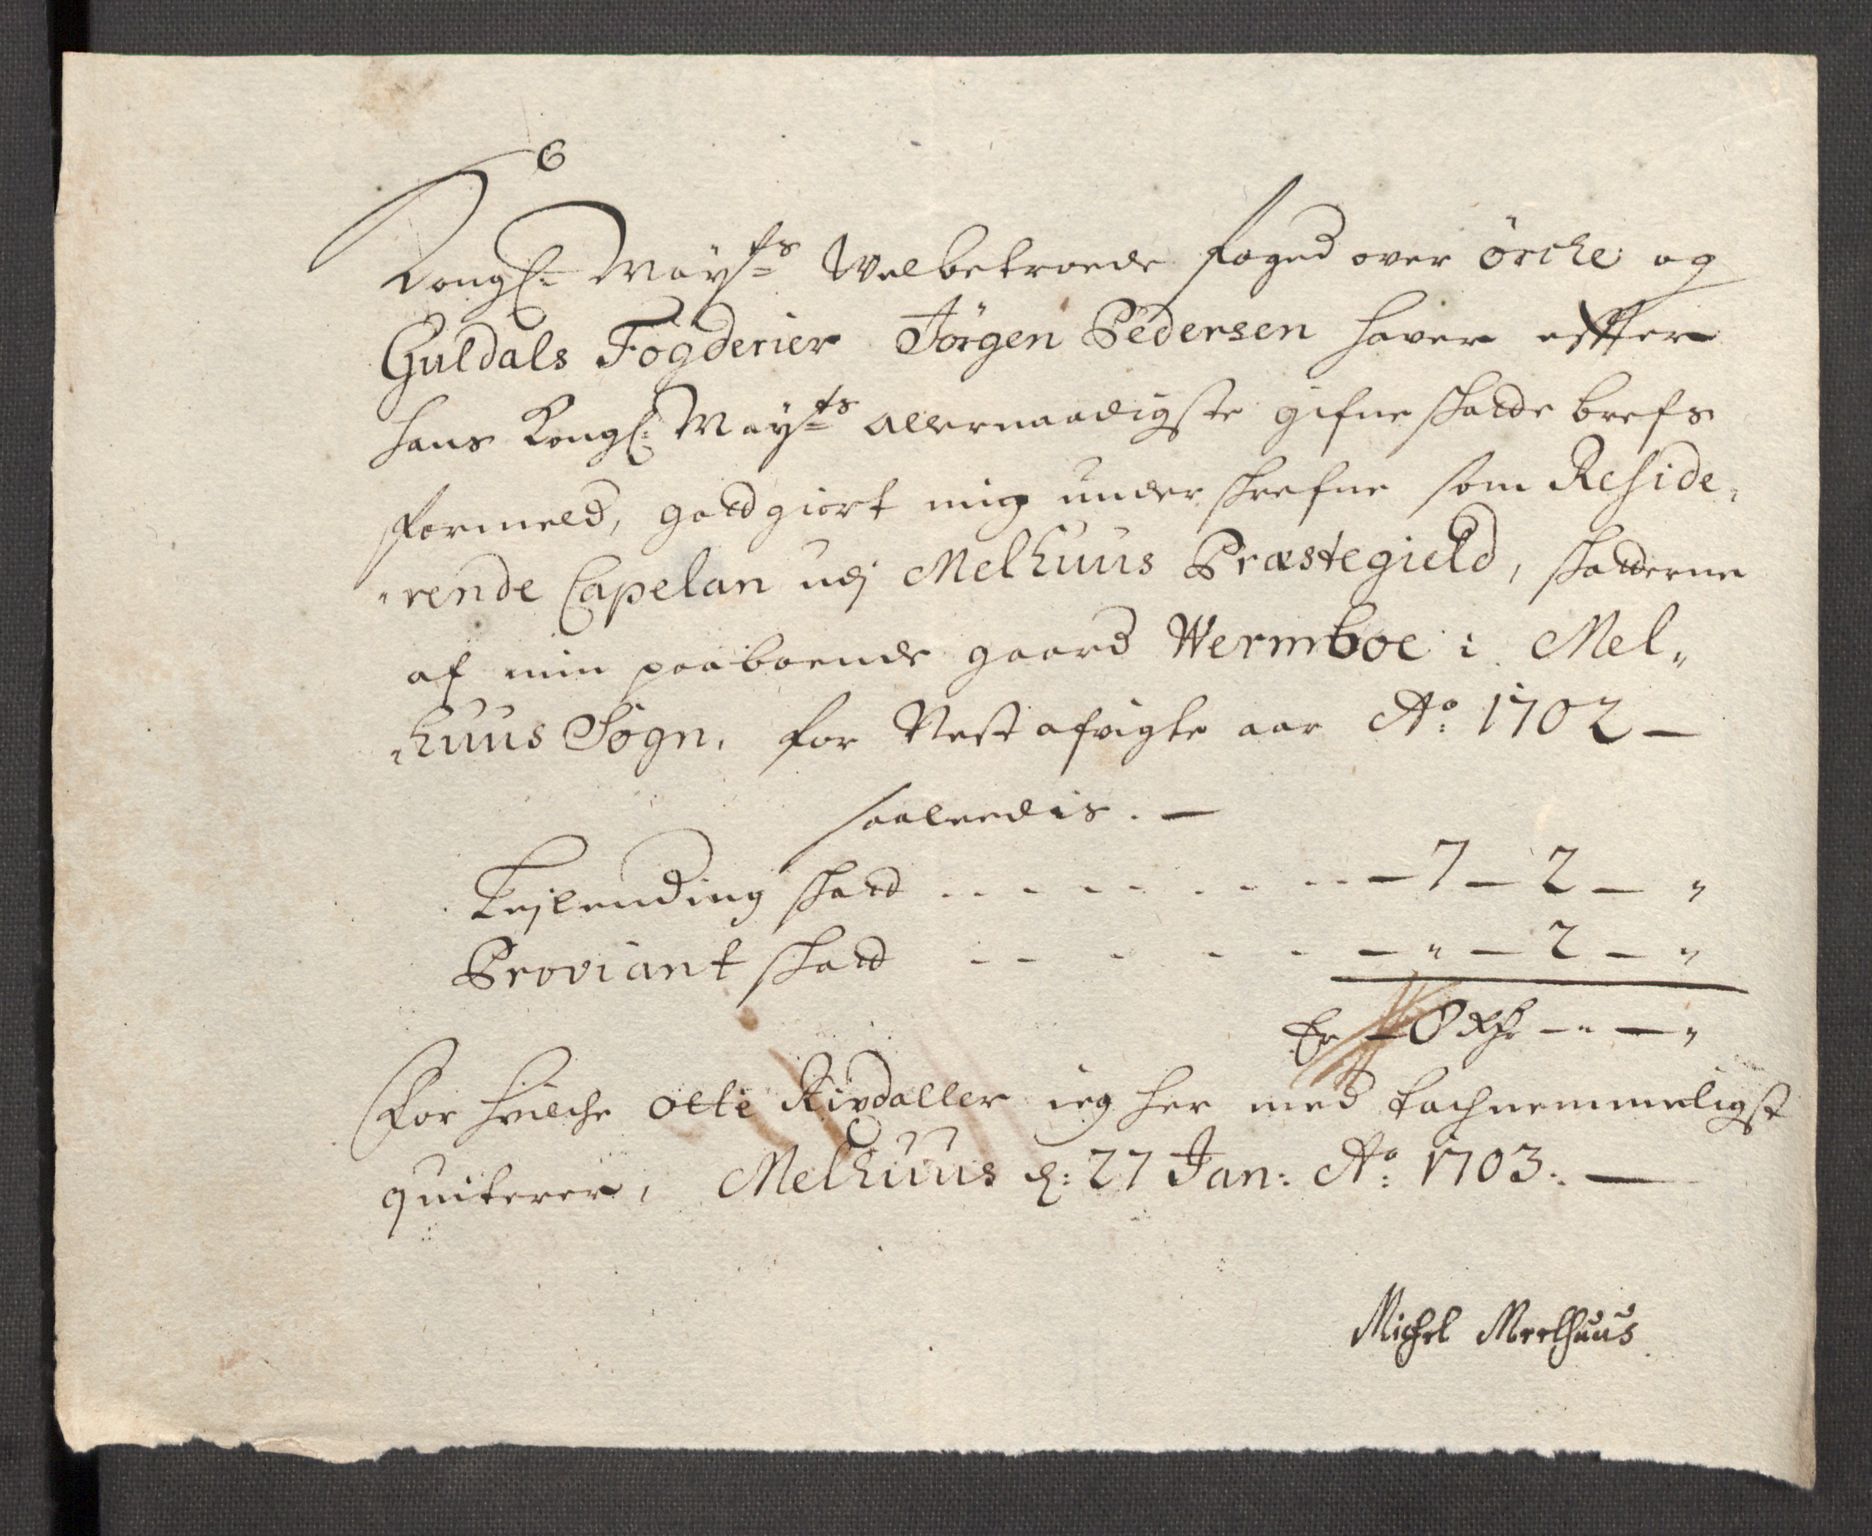 6
Kongl: Mayts Welbetroede foged over Örche og
Guldals Fögderier Jörgen Pedersen hafver effter
hans Kongl: Mayts allernaadigste gifne skatte brefs
formeld, gotgiort mig underskrefne som Reside-
-rende Capelan udj Melhuus Præstegield, skatterne
af min paaboende gaard Wermboe i Mel-
-huus Sogn, for Nest afvigte aar Ao: 1702 —
saaledis. —
Lejlending skatt — 7 — 2 — „
Proviant skatt — „ — 2 — „
Er — 8 Rdr — „ — „
For hvilche otte Rixdaller ieg her med tachnemmeligst
quiterer, Melhuus d: 27 Jan: Ao: 1703. —
Michel Meelhuus